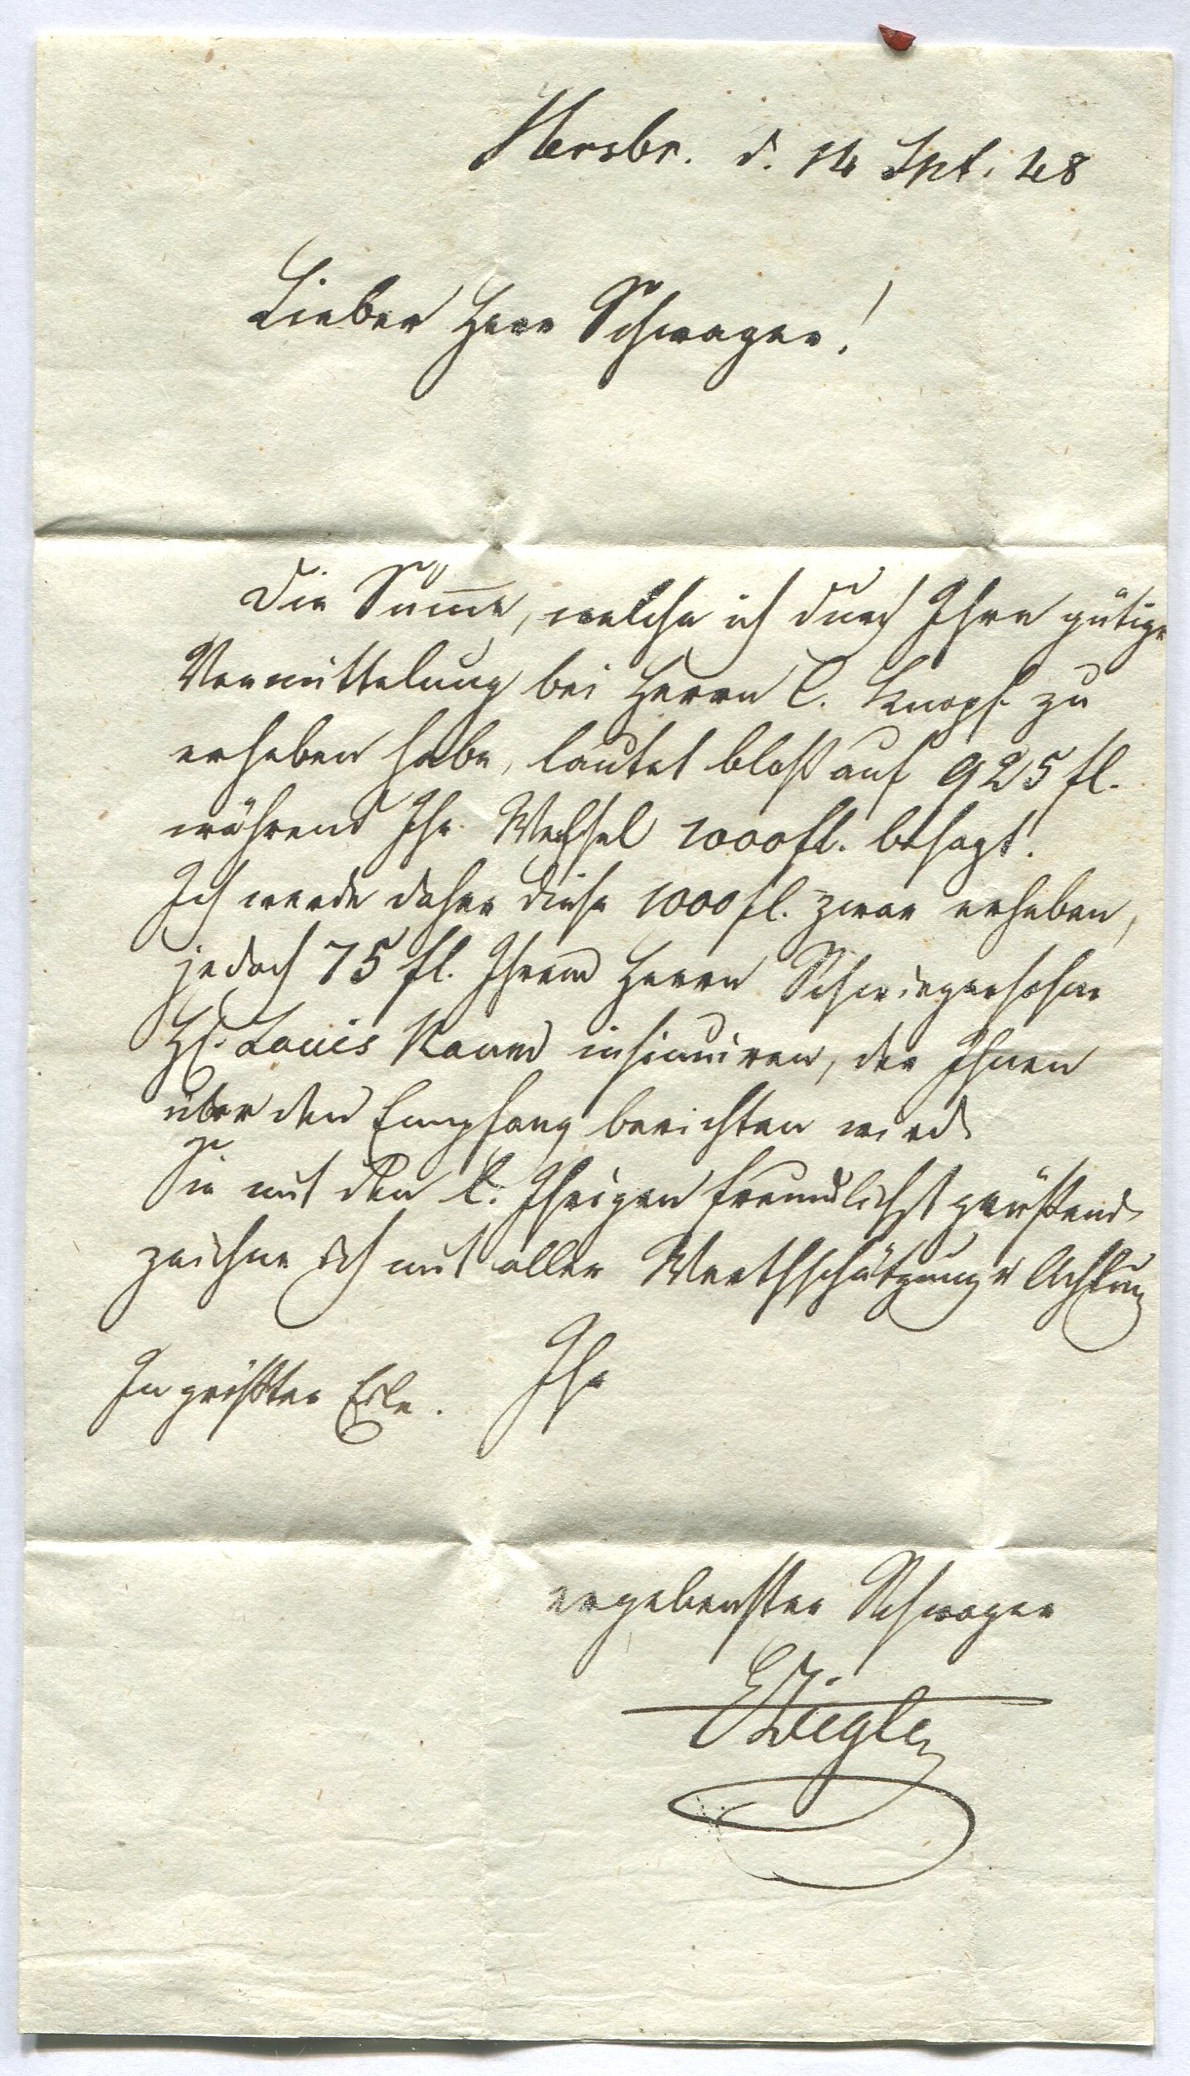 Hersbr. d. 14 Spt. 48
Lieber Herr Schwager!
Die Sum̅e, welche ich durch Ihre gütige
Vermittelung bei Herrn C. Knopf zu
erheben habe, lautet bloß auf 925 fl.
während Ihr Wechsel 1000 fl. besagt.
Ich werde daher diese 1000 fl. zwar erheben,
jedoch 75 fl. Ihrem Herrn Schwiegersohne
H. Louis insinuiren, der Ihnen
über den Empfang berichten wird.
Sie mit den l. Ihrigen freundlichst grüßend
zeichne ich mit aller Werthschätzung u Achtung
In größter Eile. Ihr
ergebenster Schwager